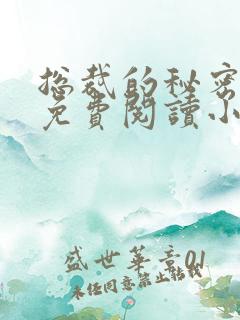 总裁的秘密
免費閱讀小
盛世華章01
未经同意禁止転載